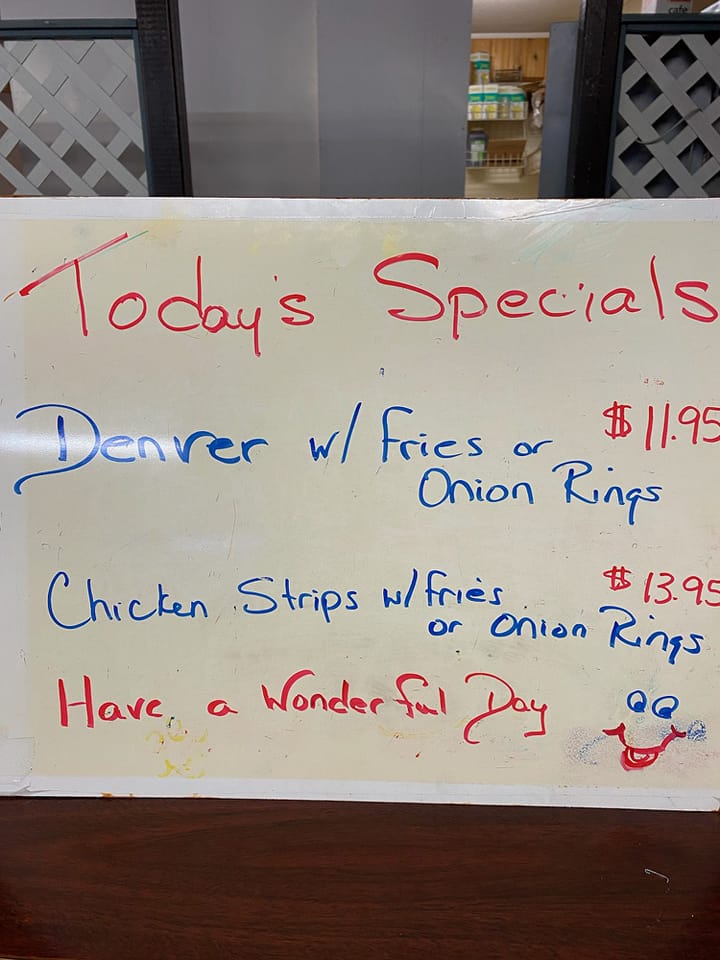 cafe
Today's Specials
Denver w/ Fries or $11.95
Onion Rings
Chicken Strips w/ fries $13.95
or Onion Rings
Have a Wonderful Day